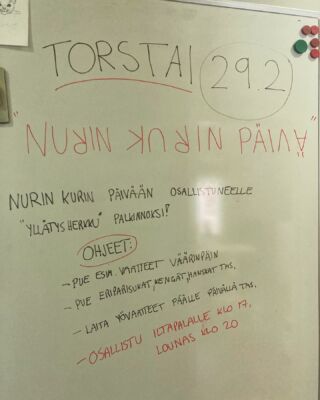 TORSTAI 29.2
"NURIN KURIN PÄIVÄ"
NURIN KURIN PÄIVÄÄN OSALLISTUNEELLE
"YLLÄTYSHERKKU" PALKINNOKSI!
OHJEET:
- PUE ESIM. VAATTEET VÄÄRINPÄIN
- PUE ERIPARISUKAT, KENGÄT, HANSKAT TAS.
- LAITA YÖVAATTEET PÄÄLLE PÄIVÄLLÄ TAS.
- OSALLISTU ILTAPALALLE KLO 17,
LOUNAS KLO 20